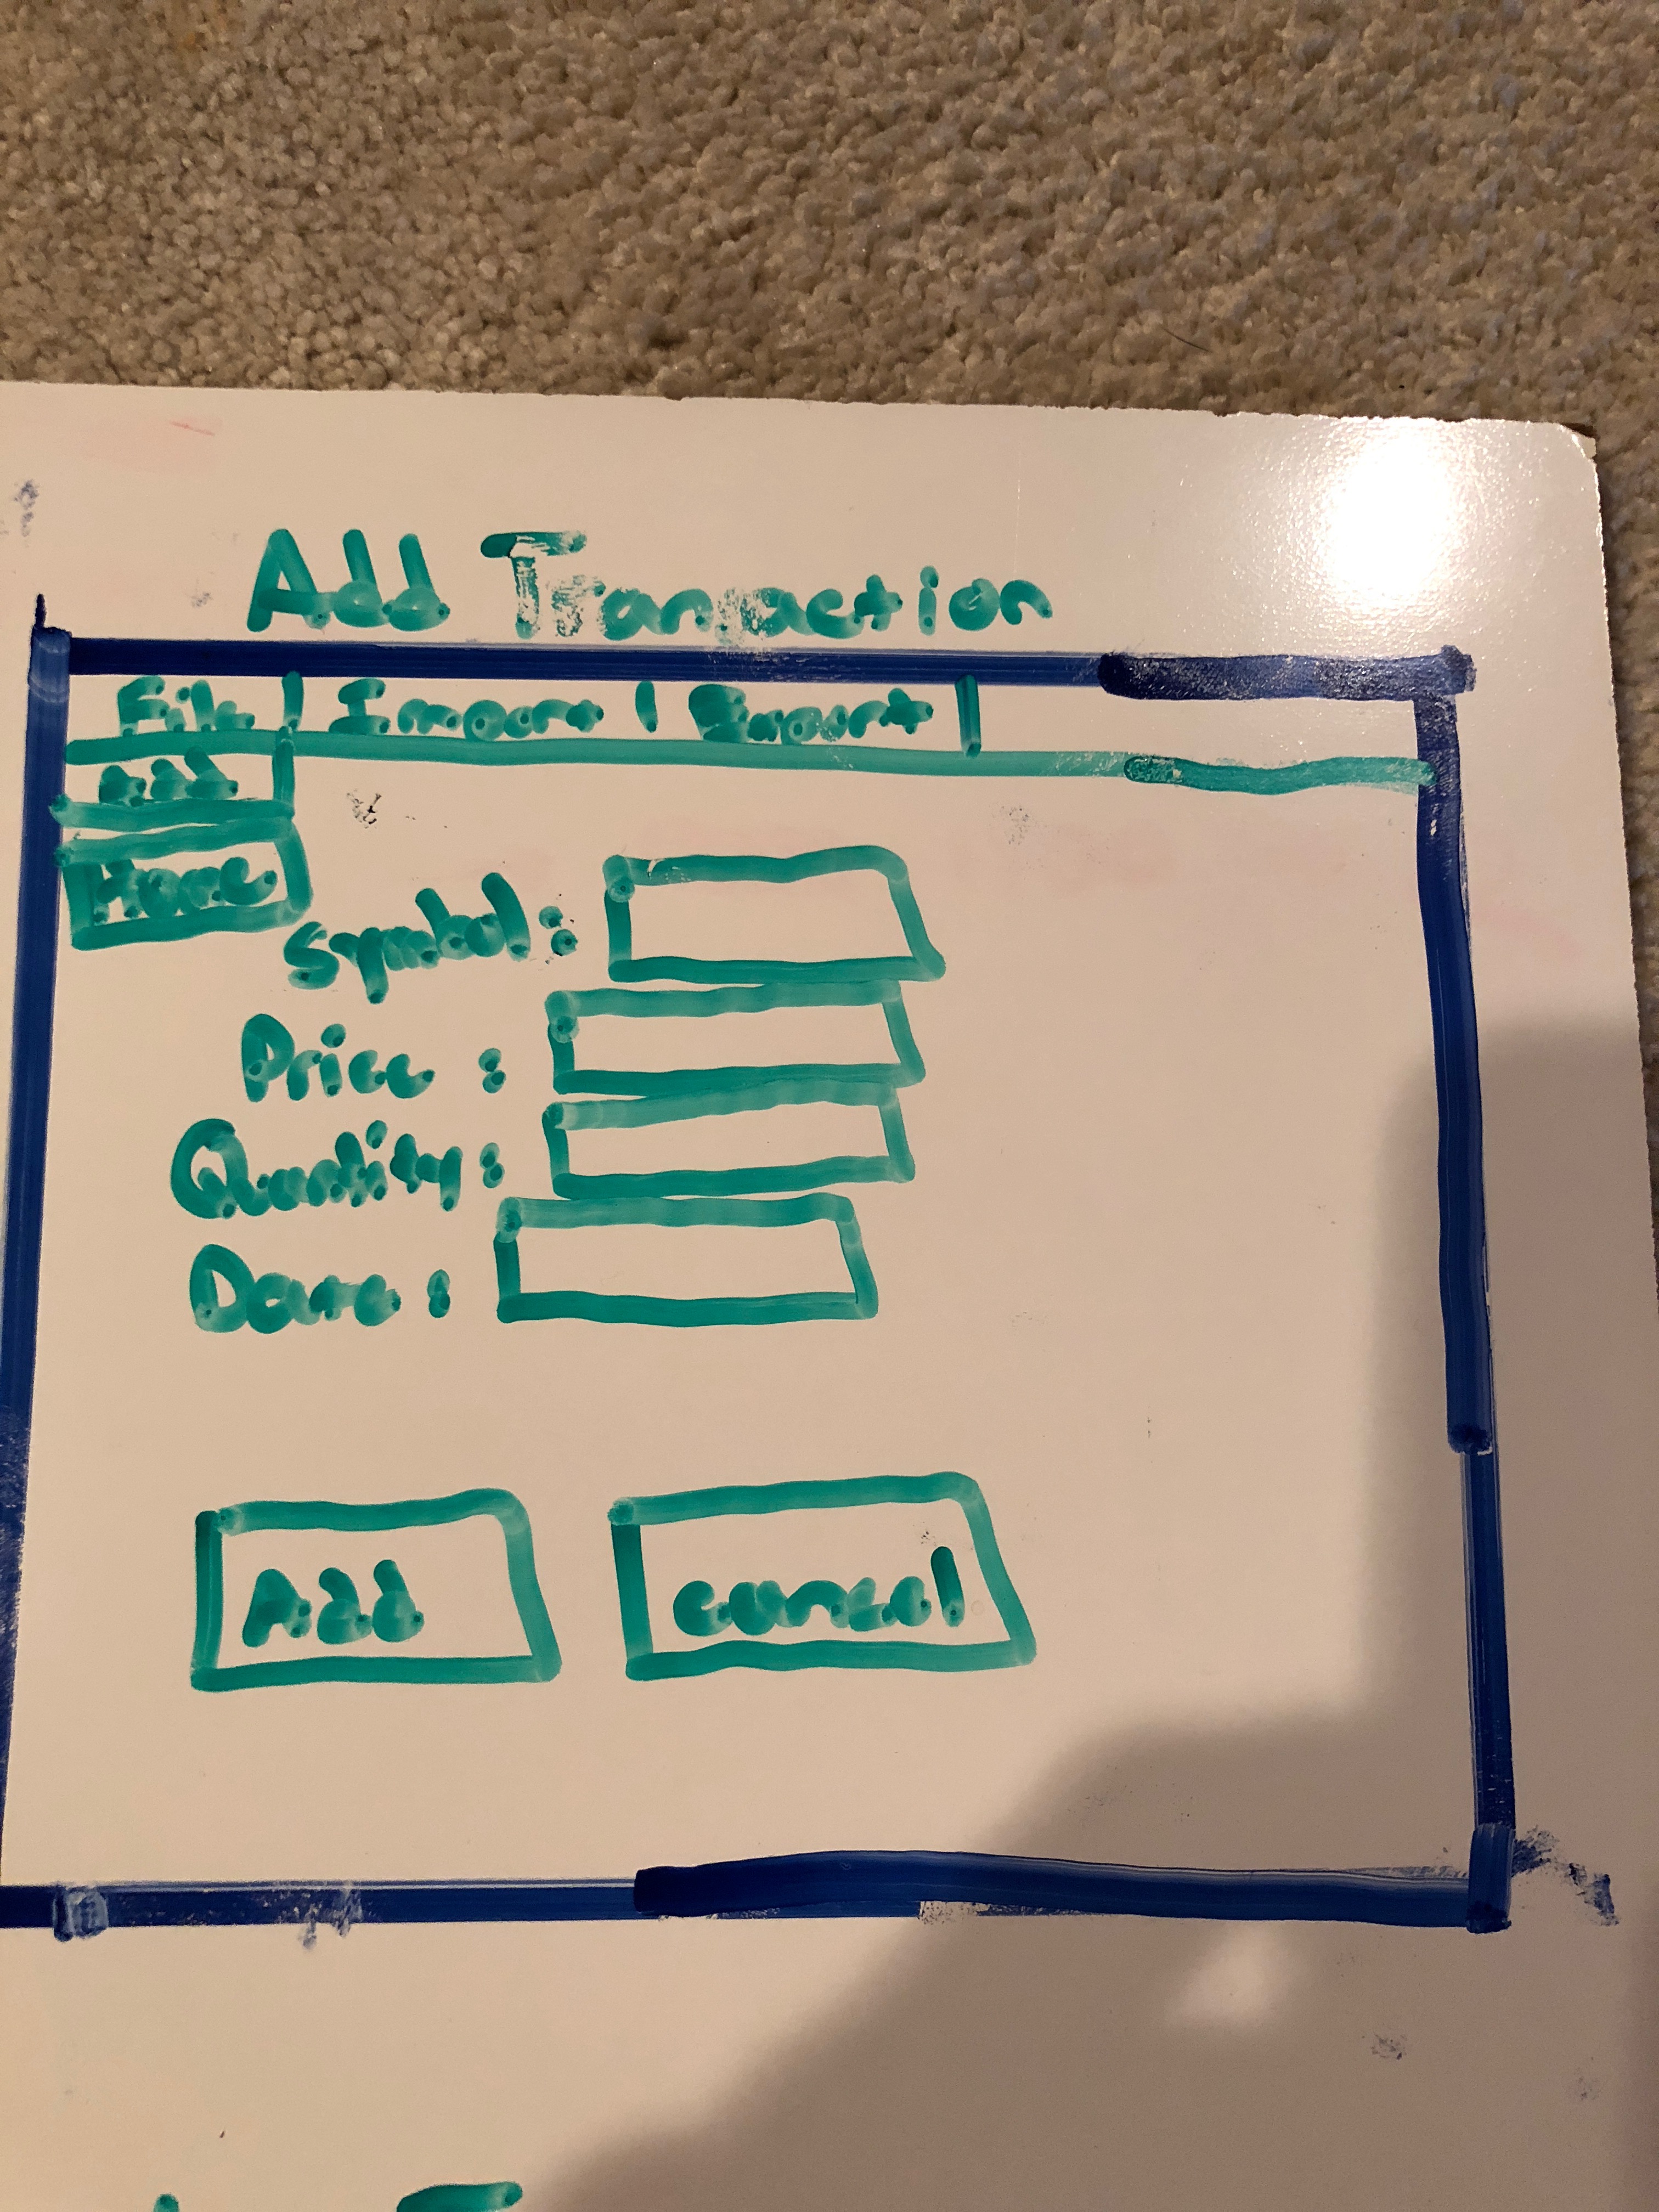 Add Transaction
File | Import | Export |
Add
Home
Symbol:
Price :
Quantity:
Date :
Add
cancel